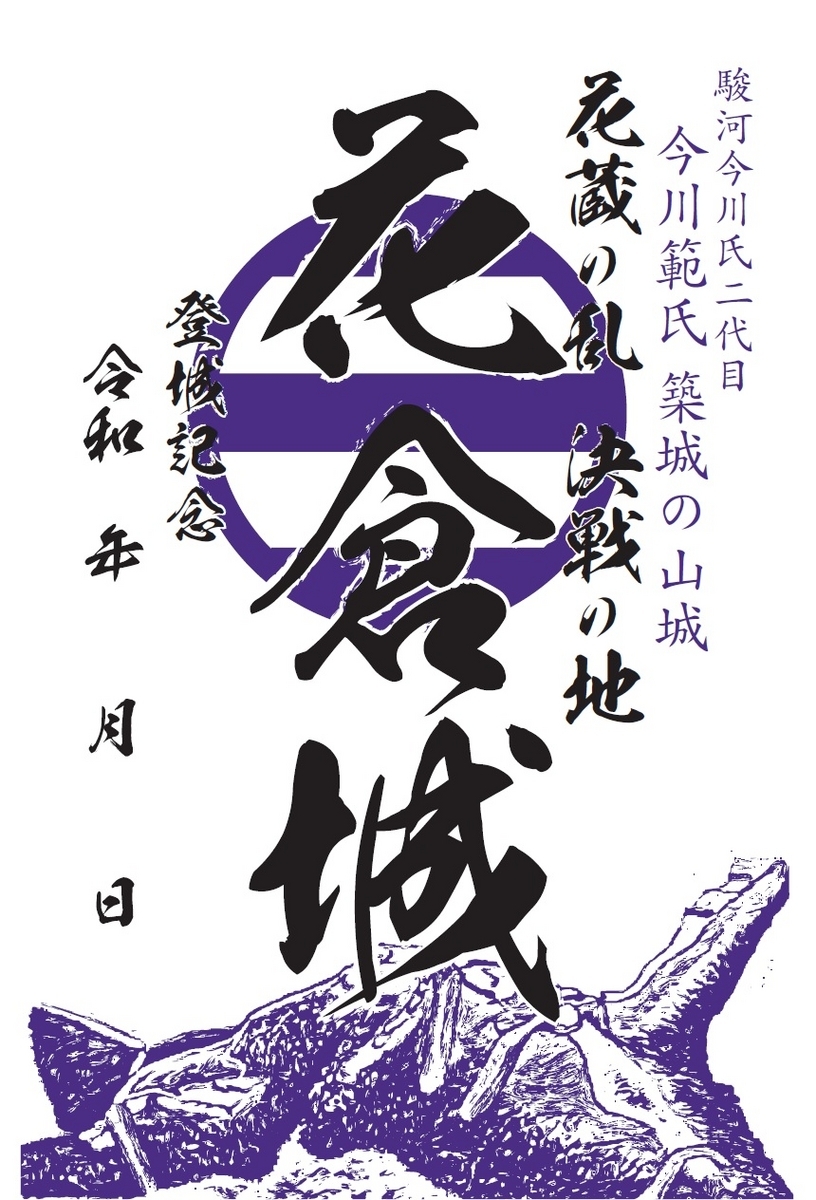 駿河今川氏二代目
今川範氏 築城の山城
花蔵の乱 決戦の地
花倉城
登城記念
令和 年 月 日